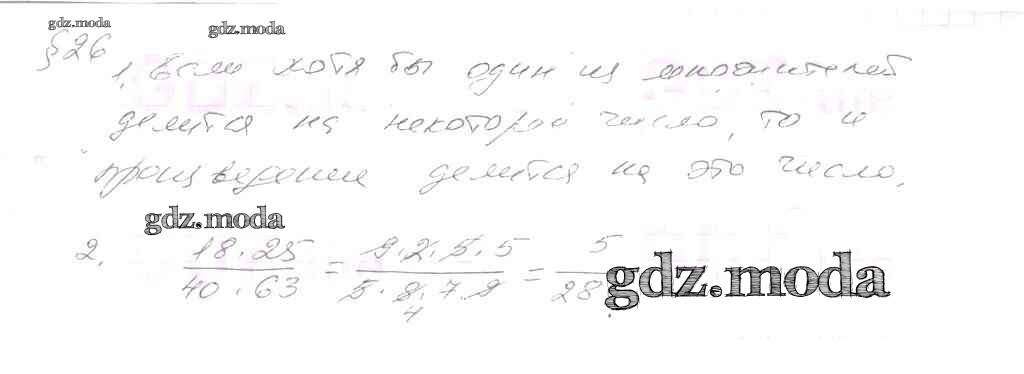 gdz.moda
gdz.moda
§26
1. Если хотя бы один из множителей
делится на некоторое число, то и
произведение делится на это число.
gdz.moda
2. \frac{18 \cdot 25}{40 \cdot 63} = \frac{9 \cdot 2 \cdot 5 \cdot 5}{5 \cdot 8 \cdot 7 \cdot 9} = \frac{5}{28}
4
gdz.moda